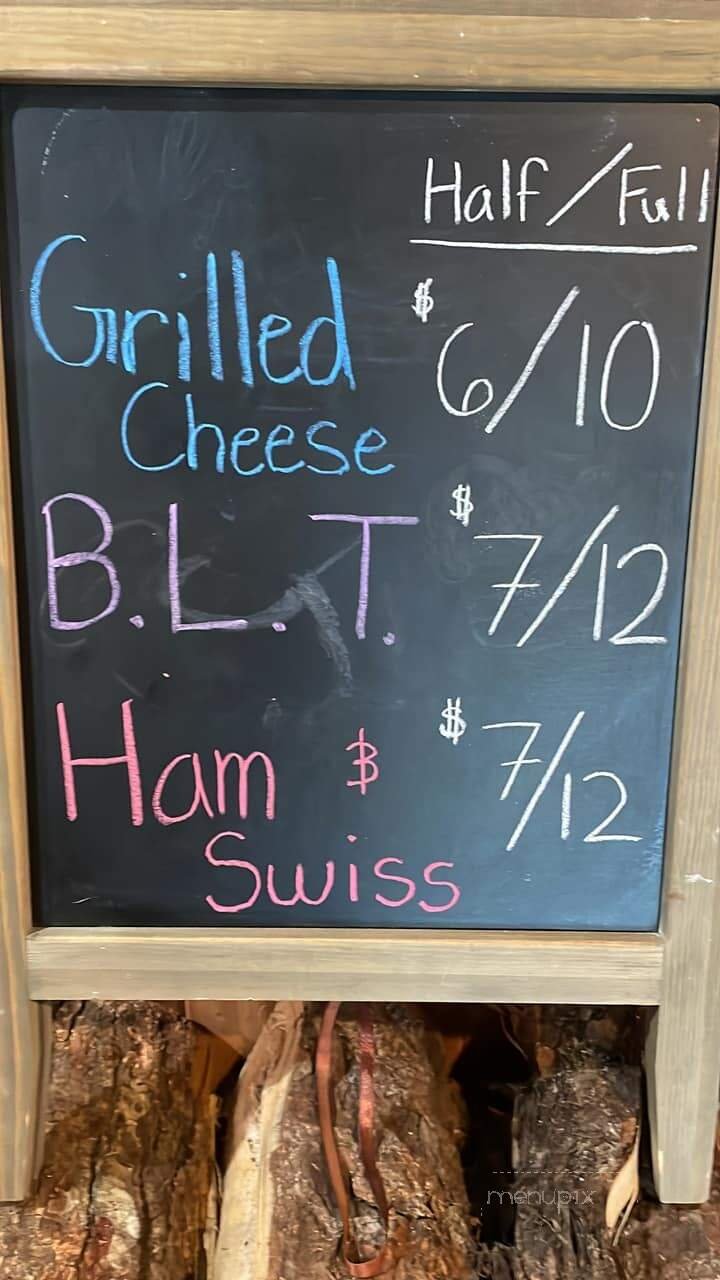 Half/Full
Grilled $6/10
Cheese
B.L.T. $7/12
Ham & $7/12
Swiss
menupix